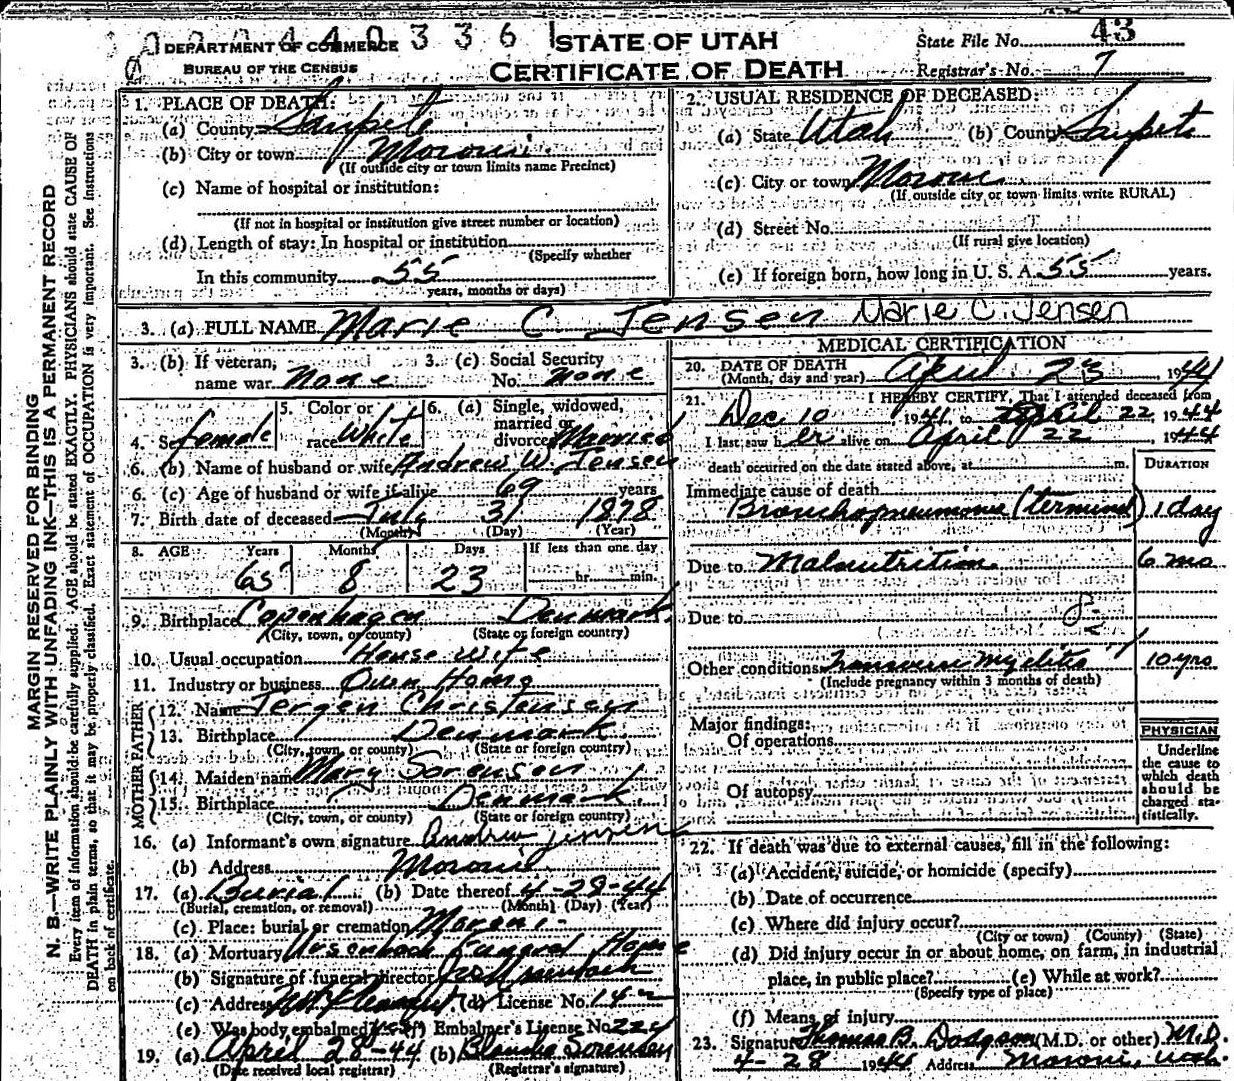 0 0 4 4 0 3 3 6
DEPARTMENT OF COMMERCE
BUREAU OF THE CENSUS
STATE OF UTAH
CERTIFICATE OF DEATH
State File No. 43
Registrar's No. 7
MARGIN RESERVED FOR BINDING
N. B.—WRITE PLAINLY WITH UNFADING INK—THIS IS A PERMANENT RECORD
Every item of information should be carefully supplied. AGE should be stated EXACTLY. PHYSICIANS should state CAUSE OF
DEATH in plain terms, so that it may be properly classified. Exact statement of OCCUPATION is very important. See instructions
on back of certificate.
1. PLACE OF DEATH:
(a) County Sanpete
(b) City or town Moroni
(If outside city or town limits name Precinct)
(c) Name of hospital or institution:
(If not in hospital or institution give street number or location)
(d) Length of stay: In hospital or institution
(Specify whether
In this community 55
years, months or days)
2. USUAL RESIDENCE OF DECEASED:
(a) State Utah (b) County Sanpete
(c) City or town Moroni
(If outside city or town limits write RURAL)
(d) Street No.
(If rural give location)
(e) If foreign born, how long in U. S. A. 55 years.
3. (a) FULL NAME Marie C Jensen Marie C. Jensen
3. (b) If veteran, 3. (c) Social Security
name war none No. none
4. Sex female 5. Color or race White 6. (a) Single, widowed, married or divorced Married
6. (b) Name of husband or wife Andrew W. Jensen
6. (c) Age of husband or wife if alive 69 years
7. Birth date of deceased July 31 1878
(Month) (Day) (Year)
8. AGE Years Months Days If less than one day
65 8 23 hr. min.
9. Birthplace Copenhagen Denmark
(City, town, or county) (State or foreign country)
10. Usual occupation House wife
11. Industry or business Own Home
FATHER
12. Name Jergen Christensen
13. Birthplace Denmark
(City, town, or county) (State or foreign country)
MOTHER
14. Maiden name Mary Sorensen
15. Birthplace Denmark
(City, town, or county) (State or foreign country)
16. (a) Informant's own signature Andrew Jensen
(b) Address Moroni
17. (a) Burial (b) Date thereof 4-28-44
(Burial, cremation, or removal) (Month) (Day) (Year)
(c) Place: burial or cremation Moroni
18. (a) Mortuary Ursenbach Funeral Home
(b) Signature of funeral director
(c) Address Mt Pleasant (d) License No.
(e) Was body embalmed yes (f) Embalmer's License No. 224
19. (a) April 28-44 (b) Blanche Sorensen
(Date received local registrar) (Registrar's signature)
MEDICAL CERTIFICATION
20. DATE OF DEATH
(Month, day and year) April 23, 1944
21. I HEREBY CERTIFY, That I attended deceased from
Dec 10 1941, to April 22, 1944
I last saw her alive on April 22, 1944
death occurred on the date stated above, at m.
DURATION
Immediate cause of death
Bronchopneumonia (terminal) 1 day
Due to Malnutrition 6 mo
Due to
Other conditions Transverse myelitis 10 yrs
(Include pregnancy within 3 months of death)
Major findings:
Of operations
Of autopsy
PHYSICIAN
Underline
the cause to
which death
should be
charged sta-
tistically.
22. If death was due to external causes, fill in the following:
(a) Accident, suicide, or homicide (specify)
(b) Date of occurrence
(c) Where did injury occur?
(City or town) (County) (State)
(d) Did injury occur in or about home, on farm, in industrial
place, in public place? (e) While at work?
(Specify type of place)
(f) Means of injury
23. Signature Thomas B. Dodgson (M.D. or other) M.D.
4-28 1944 Address Moroni, Utah